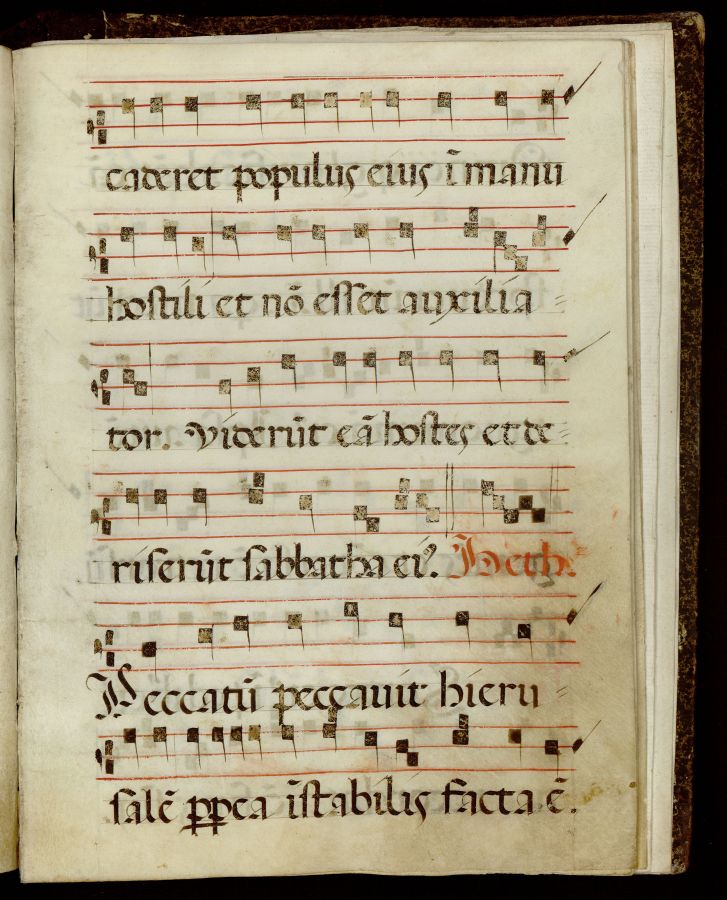 caderet populus eius ī manu
hostili et nō esset auxilia=
tor. Viderūt eā hostes et de=
riserūt sabbatha ei⁹. Heth.
Peccatū peccauit hieru=
salē ꝓpea īstabilis facta ē.